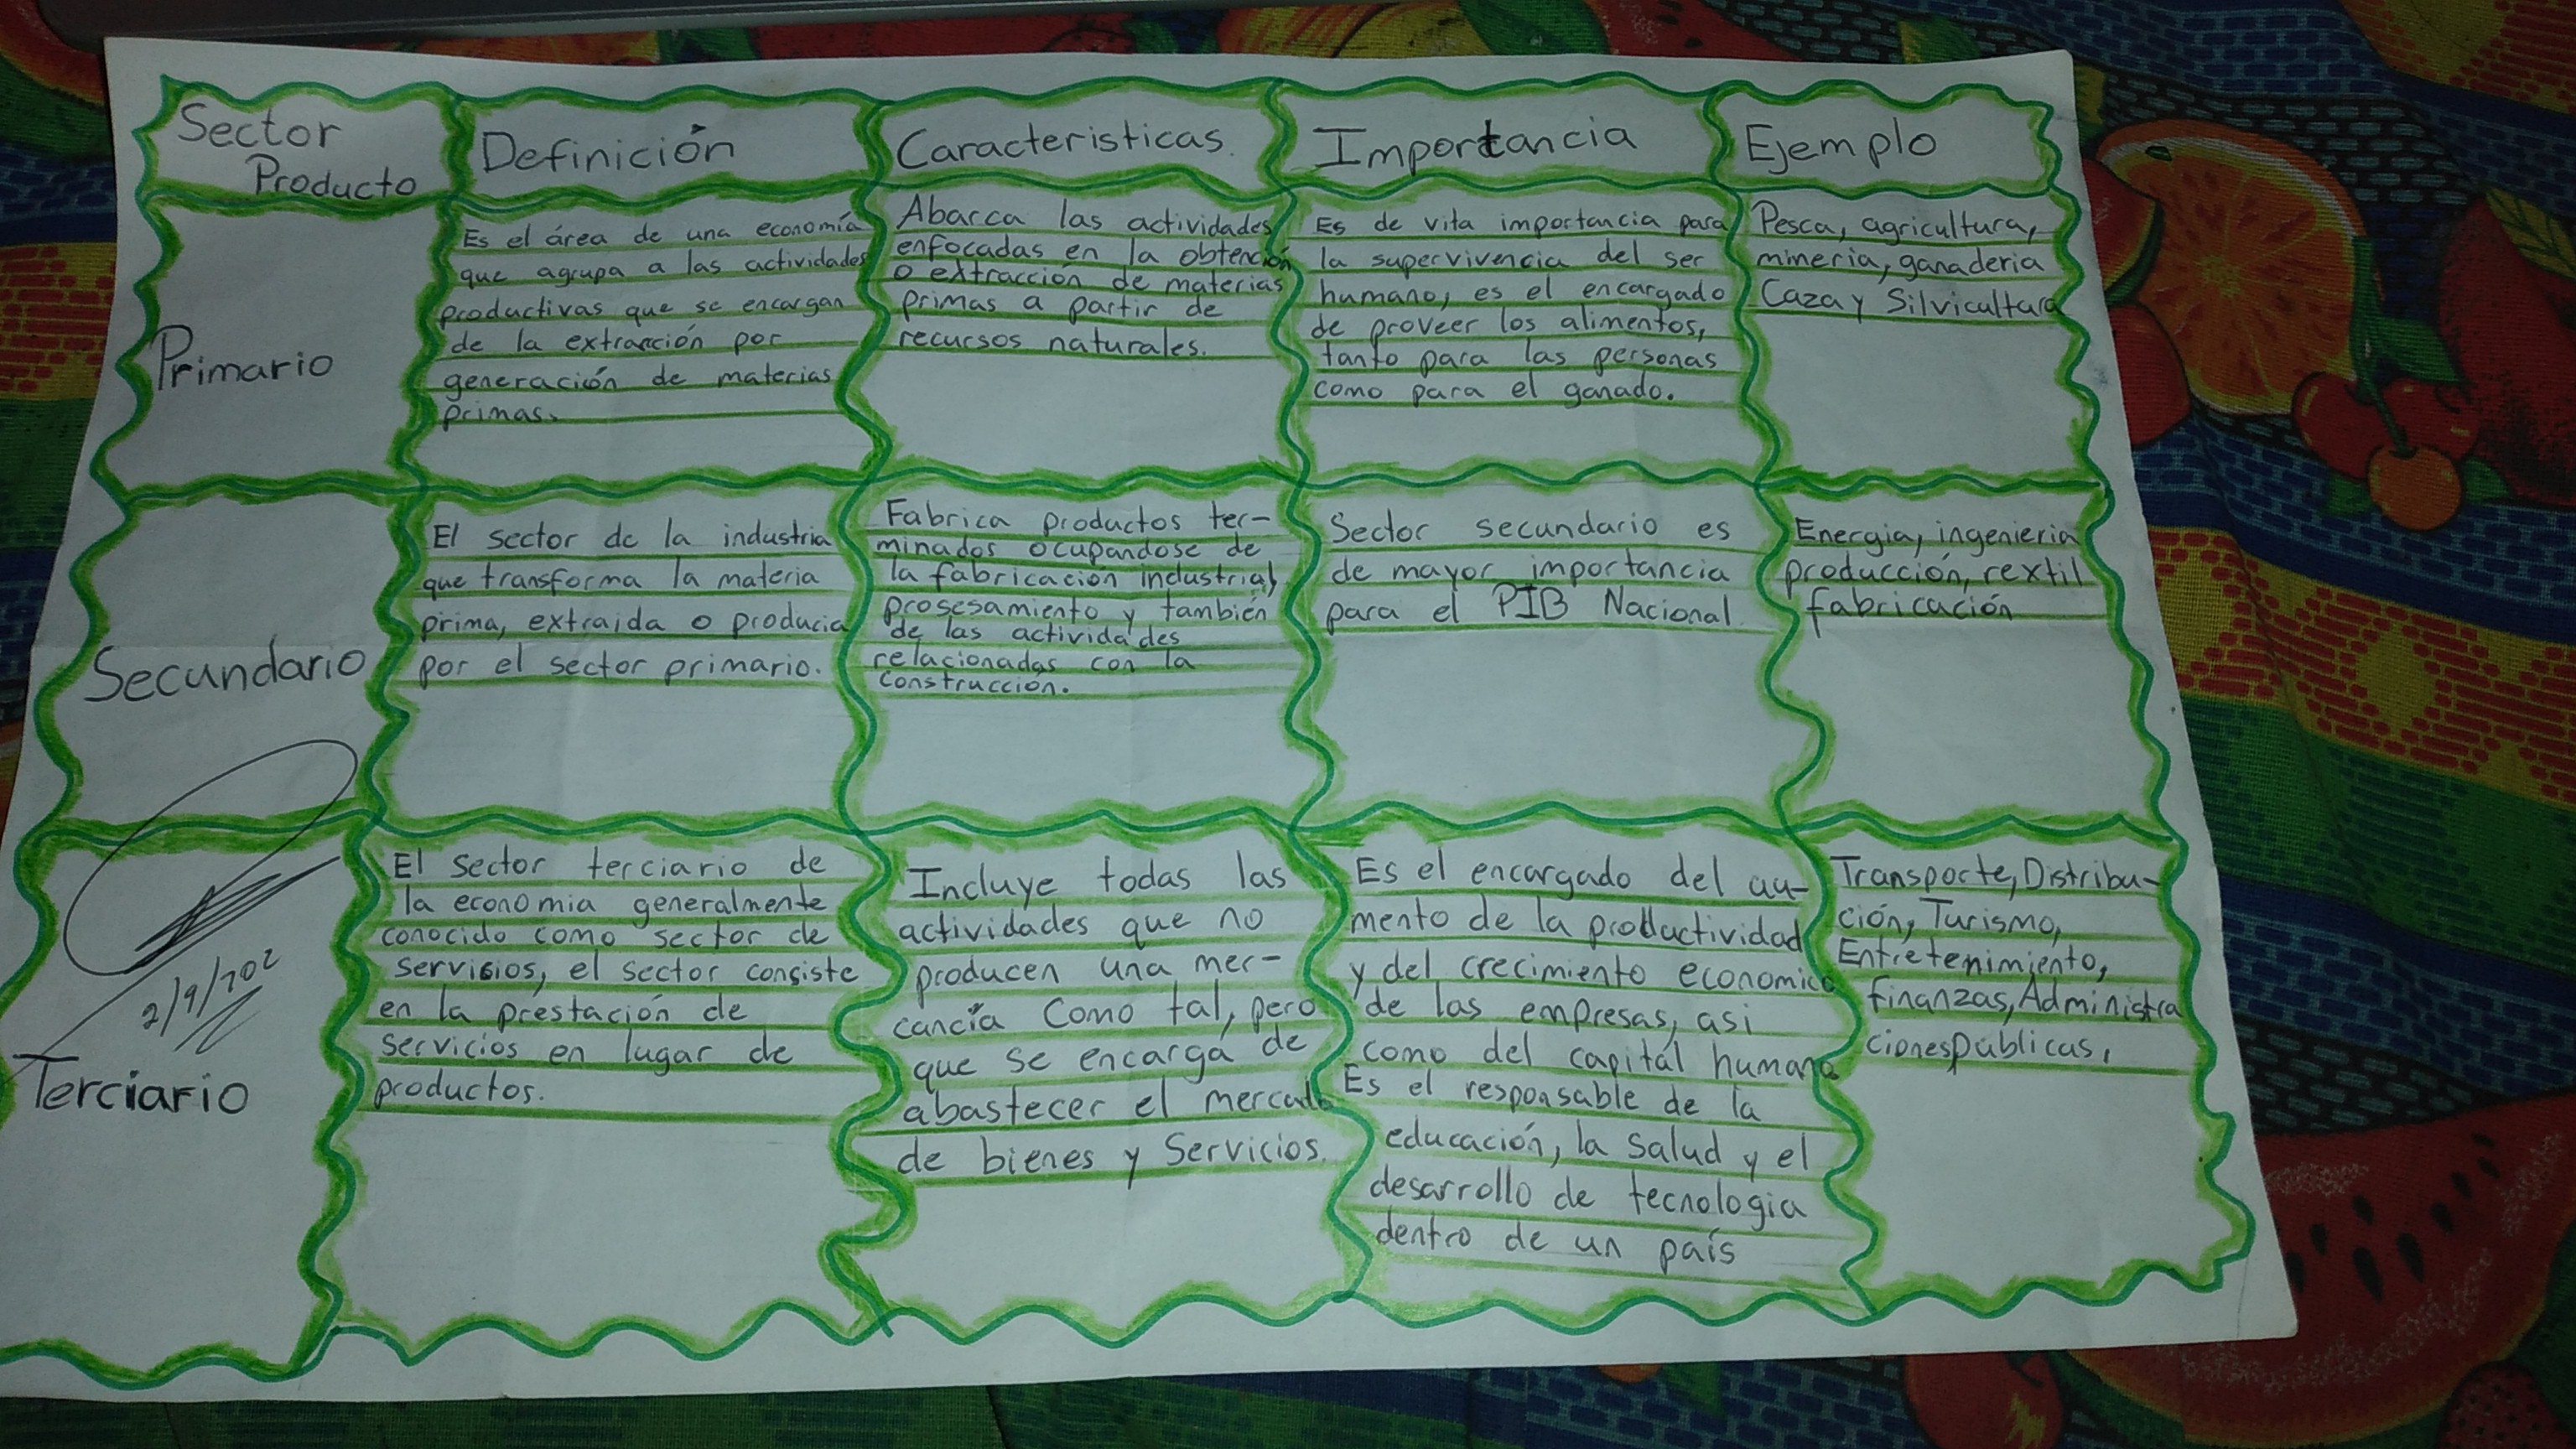 Sector
Producto
Definición
Caracteristicas.
Importancia
Ejemplo
Primario
Es el área de una economía
que agrupa a las actividades
productivas que se encargan
de la extracción por
generación de materias
primas.
Abarca las actividades
enfocadas en la obtención
o extracción de materias
primas a partir de
recursos naturales.
Es de vita importancia para
la supervivencia del ser
humano, es el encargado
de proveer los alimentos,
tanto para las personas
como para el ganado.
Pesca, agricultura,
mineria, ganaderia
Caza y Silvicultura
Secundario
El sector de la industria
que transforma la materia
prima, extraida o producia
por el sector primario.
Fabrica productos ter-
minados ocupandose de
la fabricación industrial,
prosesamiento y también
de las actividades
relacionadas con la
construcción.
Sector secundario es
de mayor importancia
para el PIB Nacional.
Energia, ingenieria
producción, rextil
fabricación
2/9/202
Terciario
El sector terciario de
la economia generalmente
conocido como sector de
servicios, el sector consiste
en la prestación de
servicios en lugar de
productos.
Incluye todas las
actividades que no
producen una mer-
cancía Como tal, pero
que se encarga de
abastecer el mercado
de bienes y Servicios.
Es el encargado del au-
mento de la productividad
y del crecimiento economico
de las empresas, asi
como del capital humano
Es el responsable de la
educación, la salud y el
desarrollo de tecnologia
dentro de un país
Transporte, Distribu-
ción, Turismo,
Entretenimiento,
finanzas, Administra
ciones públicas,